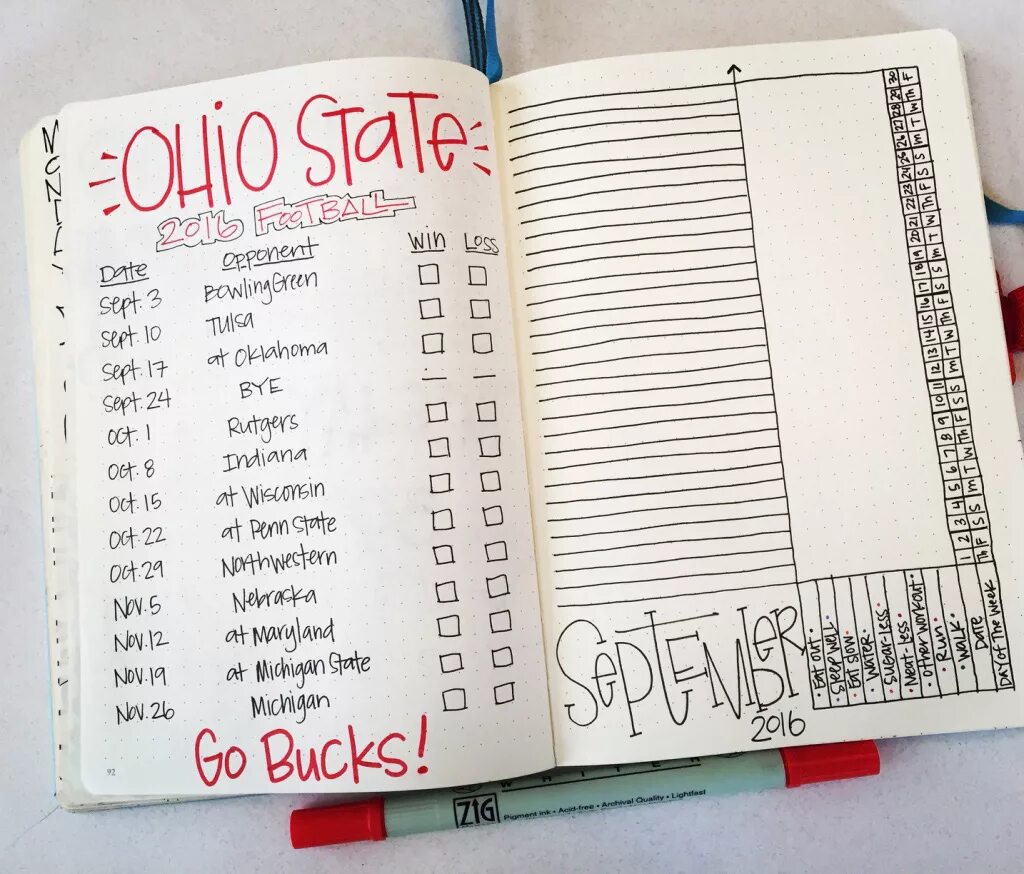 OHIO STATE
2016 FOOTBALL
Date Opponent Win Loss
Sept. 3 Bowling Green
Sept. 10 Tulsa
Sept. 17 at Oklahoma
Sept. 24 BYE
Oct. 1 Rutgers
Oct. 8 Indiana
Oct. 15 at Wisconsin
Oct. 22 at Penn State
Oct. 29 Northwestern
Nov. 5 Nebraska
Nov. 12 at Maryland
Nov. 19 at Michigan State
Nov. 26 Michigan
Go Bucks!
92
SEPTEMBER
2016
Eat out
Sleep well
Eat slow
Water
Sugar-less
Meat-less
Other workout
Run
Walk
Date 1 2 3 4 5 6 7 8 9 10 11 12 13 14 15 16 17 18 19 20 21 22 23 24 25 26 27 28 29 30
Day of the Week Th F S S M T W Th F S S M T W Th F S S M T W Th F S S M T W Th F
ZIG WRITER
Pigment ink • Acid-free • Archival Quality • Lightfast